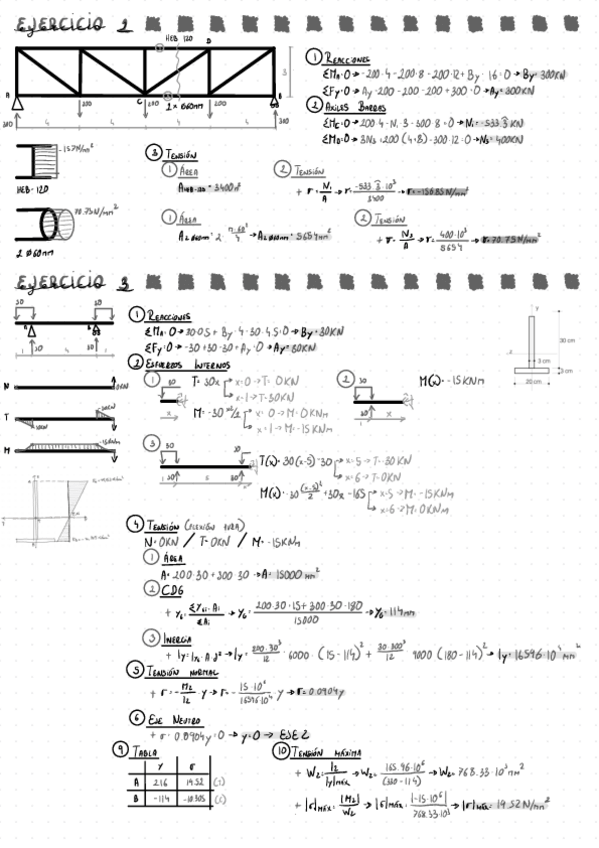 EJERCICIO 2
HEB 120
D
A
C
B
3
200
200
200
2 x Ø60mm
300
300
① REACCIONES
ΣMA=0 → -200·4-200·8-200·12+By·16=0 → By=300KN
ΣFy=0 → Ay-200-200-200+300=0 → Ay=300KN
② AXILES BARRAS
ΣMc=0 → 200·4-N1·3-300·8=0 → N1=-533.3̂ KN
ΣMD=0 → 3N3+200(4+8)-300·12=0 → N3=400KN
-157N/mm²
HEB-120
70.75N/mm²
2 Ø60mm
③ TENSIÓN
① ÁREA
AHEB-120=3400mm²
② TENSIÓN
+ σ=N1/A → σ=-533.3̂·10³/3400 → σ=-156.85N/mm²
① ÁREA
A2Ø60mm=2·π·60²/4 → A2Ø60mm=5654mm²
② TENSIÓN
+ σ=N3/A → σ=400·10³/5654 → σ=70.75N/mm²
EJERCICIO 3
30
30
A
B
30
30
① REACCIONES
ΣMA=0 → 30·0.5+By·4-30·4.5=0 → By=30KN
ΣFy=0 → -30+30-30+Ay=0 → Ay=30KN
② ESFUERZOS INTERNOS
① 30
T=30x
x=0→T=0KN
x=1→T=30KN
M=-30 x²/2
x=0→M=0KNm
x=1→M=-15KNm
② 30
30
M(x)=-15KNm
y
z
30 cm
3 cm
3 cm
20 cm
N
0KN
T
M
③ 30
30
30
30
T(x)=30(x-5)-30
x=5→T=-30KN
x=6→T=0KN
M(x)=-30(x-5)²/2+30x-165
x=5→M=-15KNm
x=6→M=0KNm
④ TENSIÓN (FLEXIÓN PURA)
N=0KN / T=0KN / M=-15KNm
① ÁREA
A=200·30+300·30 → A=15000mm²
② CDG
+ YG=ΣYGi·Ai/ΣAi → YG=200·30·15+300·30·180/15000 → YG=114mm
③ INERCIA
+ Iy=Iyo+A·d² → Iy=200·30³/12+6000·(15-114)²+30·300³/12+9000(180-114)² → Iy=16596·10⁴mm⁴
⑤ TENSIÓN NORMAL
+ σ=-Mz/Iz·y → σ=-15·10⁶/16596·10⁴·y → σ=0.0904y
⑥ EJE NEUTRO
+ σ=0.0904y=0 → y=0 → EJE Z
⑨ TABLA
y σ
A 216 19.52 (T)
B -114 -10.305 (C)
⑩ TENSIÓN MÁXIMA
+ Wz=Iz/|y|MÁX → Wz=165.96·10⁶/(330-114) → Wz=768.33·10³mm³
+ |σ|MÁX=|Mz|/Wz → |σ|MÁX=|-15·10⁶|/768.33·10³ → |σ|MÁX=19.52N/mm²